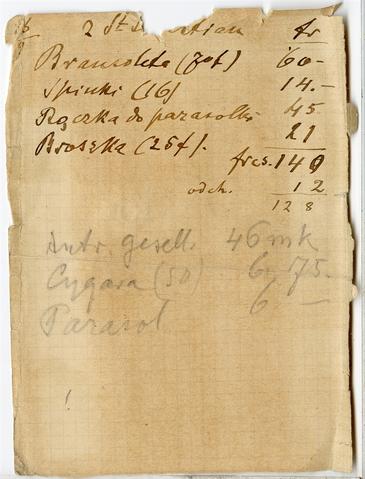 2 St. fr
Bransoleta (70f) 60-
Spinki (16) 14.-
Rączka do parasolki 45
Broszka (25f). 21
frcs. 140
odch. 12
128
Antr. gesell. 46 mk
Cygara (50) 6.75.
Parasol 6 -